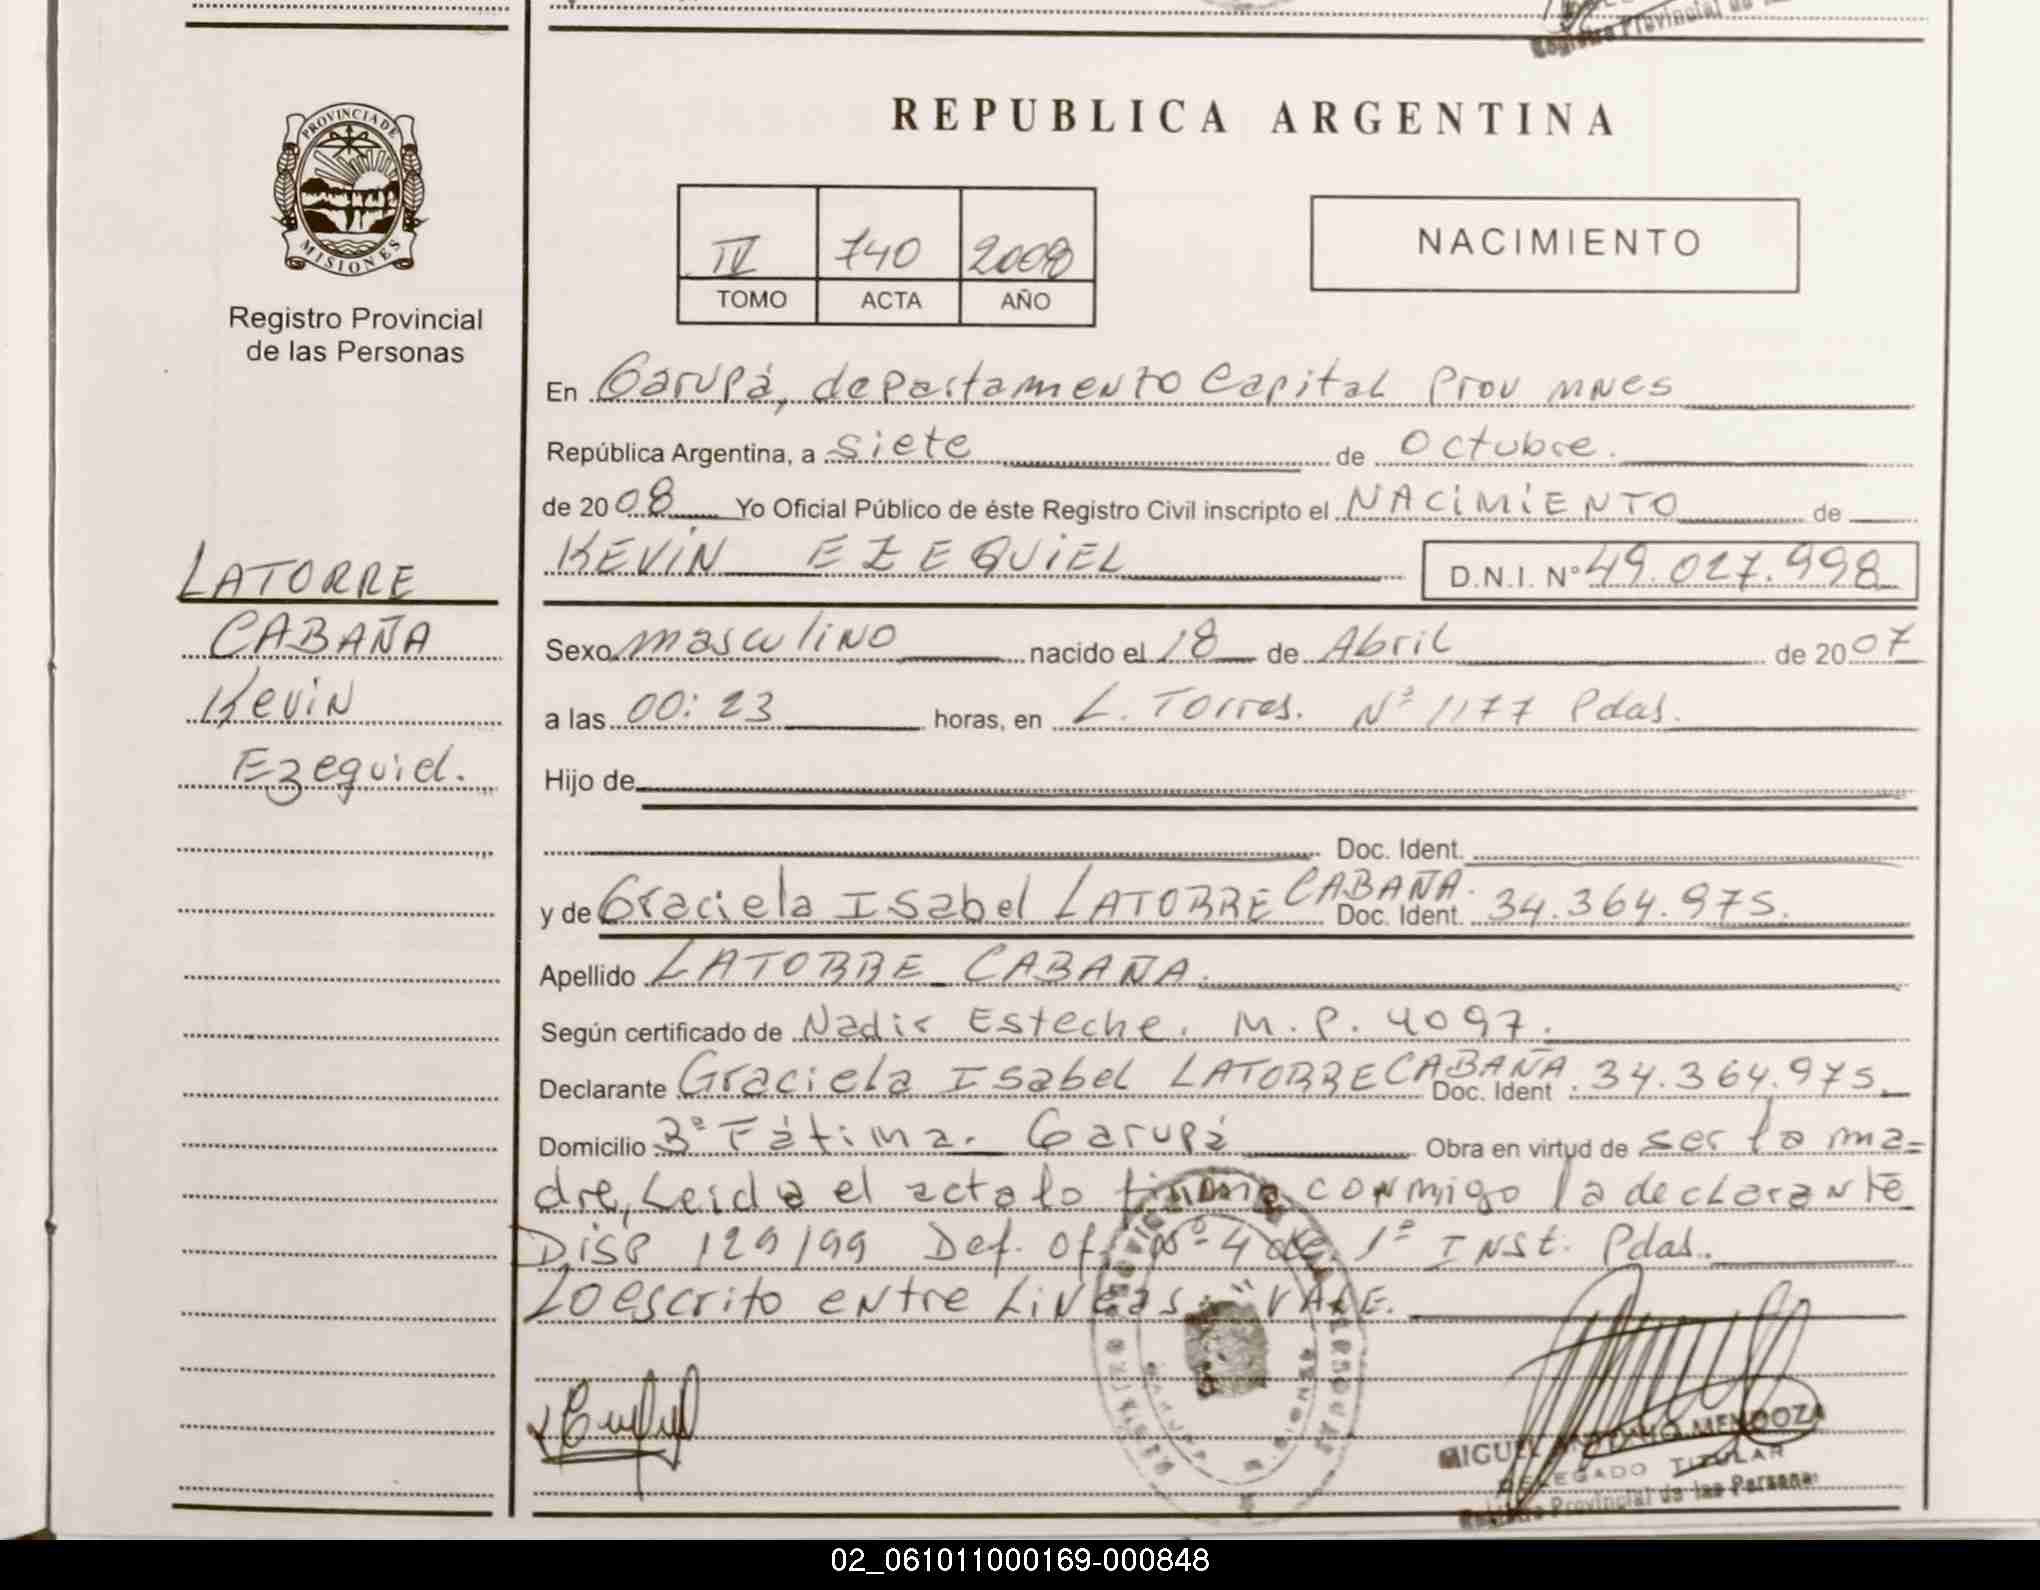 REPUBLICA ARGENTINA
PROVINCIA DE
MISIONES
Registro Provincial
de las Personas
IV 740 2008
TOMO ACTA AÑO
NACIMIENTO
LATORRE
CABAÑA
Kevin
Ezequiel.
En Garupá, departamento Capital Prov MNES
República Argentina, a siete de Octubre.
de 2008 Yo Oficial Público de éste Registro Civil inscripto el NACIMIENTO de
KEVIN EZEQUIEL D.N.I. Nº 49.027.998
Sexo masculino nacido el 18 de Abril de 2007
a las 00:23 horas, en L. Torres. Nº 1177 Pdas.
Hijo de
Doc. Ident.
y de Graciela Isabel LATORRE CABAÑA. Doc. Ident. 34.364.975.
Apellido LATORRE CABAÑA.
Según certificado de Nadir Esteche. M.P. 4097.
Declarante Graciela Isabel LATORRE CABAÑA Doc. Ident. 34.364.975.
Domicilio Bº Fátima. Garupá Obra en virtud de ser la ma=
dre, Leida el acta lo firma conmigo la declarante
Disp 129/99 Def. of. Nº 4 de 1ª Inst. Pdas.
Lo escrito entre Lineas VALE.
MIGUEL ANTONIO MENDOZA
DELEGADO TITULAR
Registro Provincial de las Personas
02_061011000169-000848